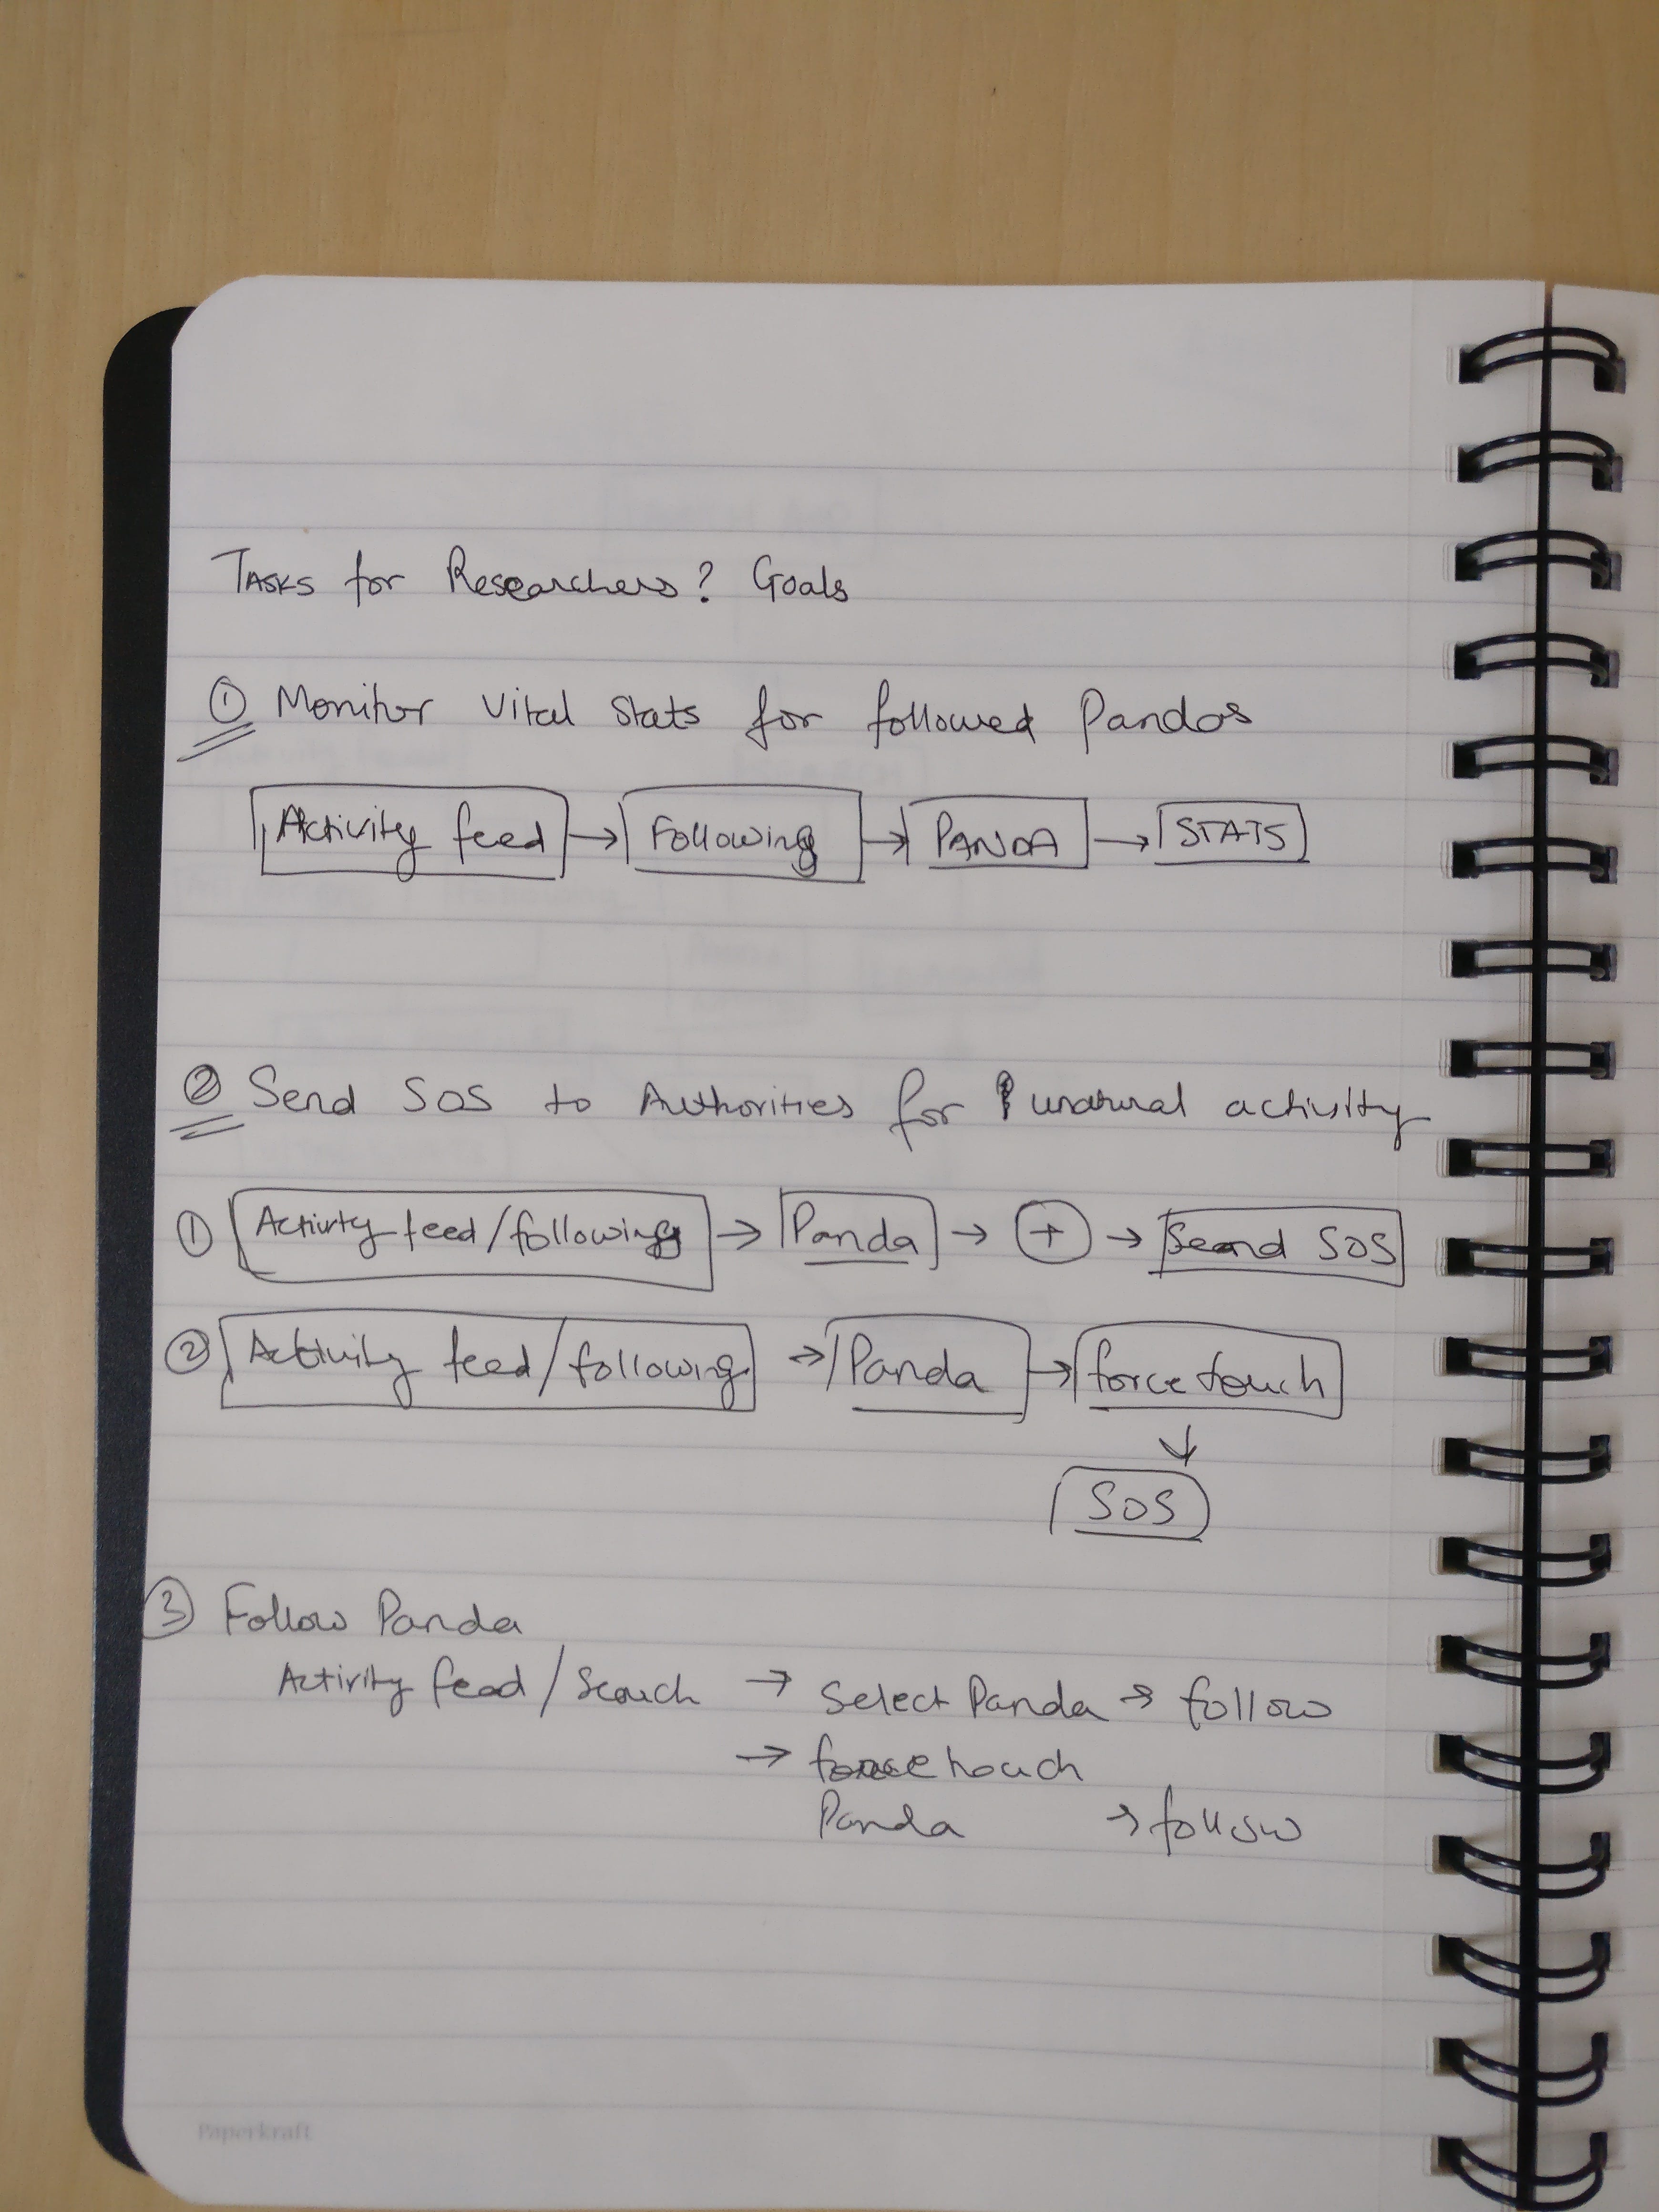 TASKS for Researchers? Goals
① Monitor Vital Stats for followed Pandas
Activity feed → Following → PANDA → STATS
② Send SOS to Authorities for unatural activity
① Activty feed/following → Panda → + → Send SOS
② Activity feed/following → Panda → force touch
↓
SOS
③ Follow Panda
Activity feed / Search → Select Panda → follow
→ force touch
Panda → follow
Paperkraft